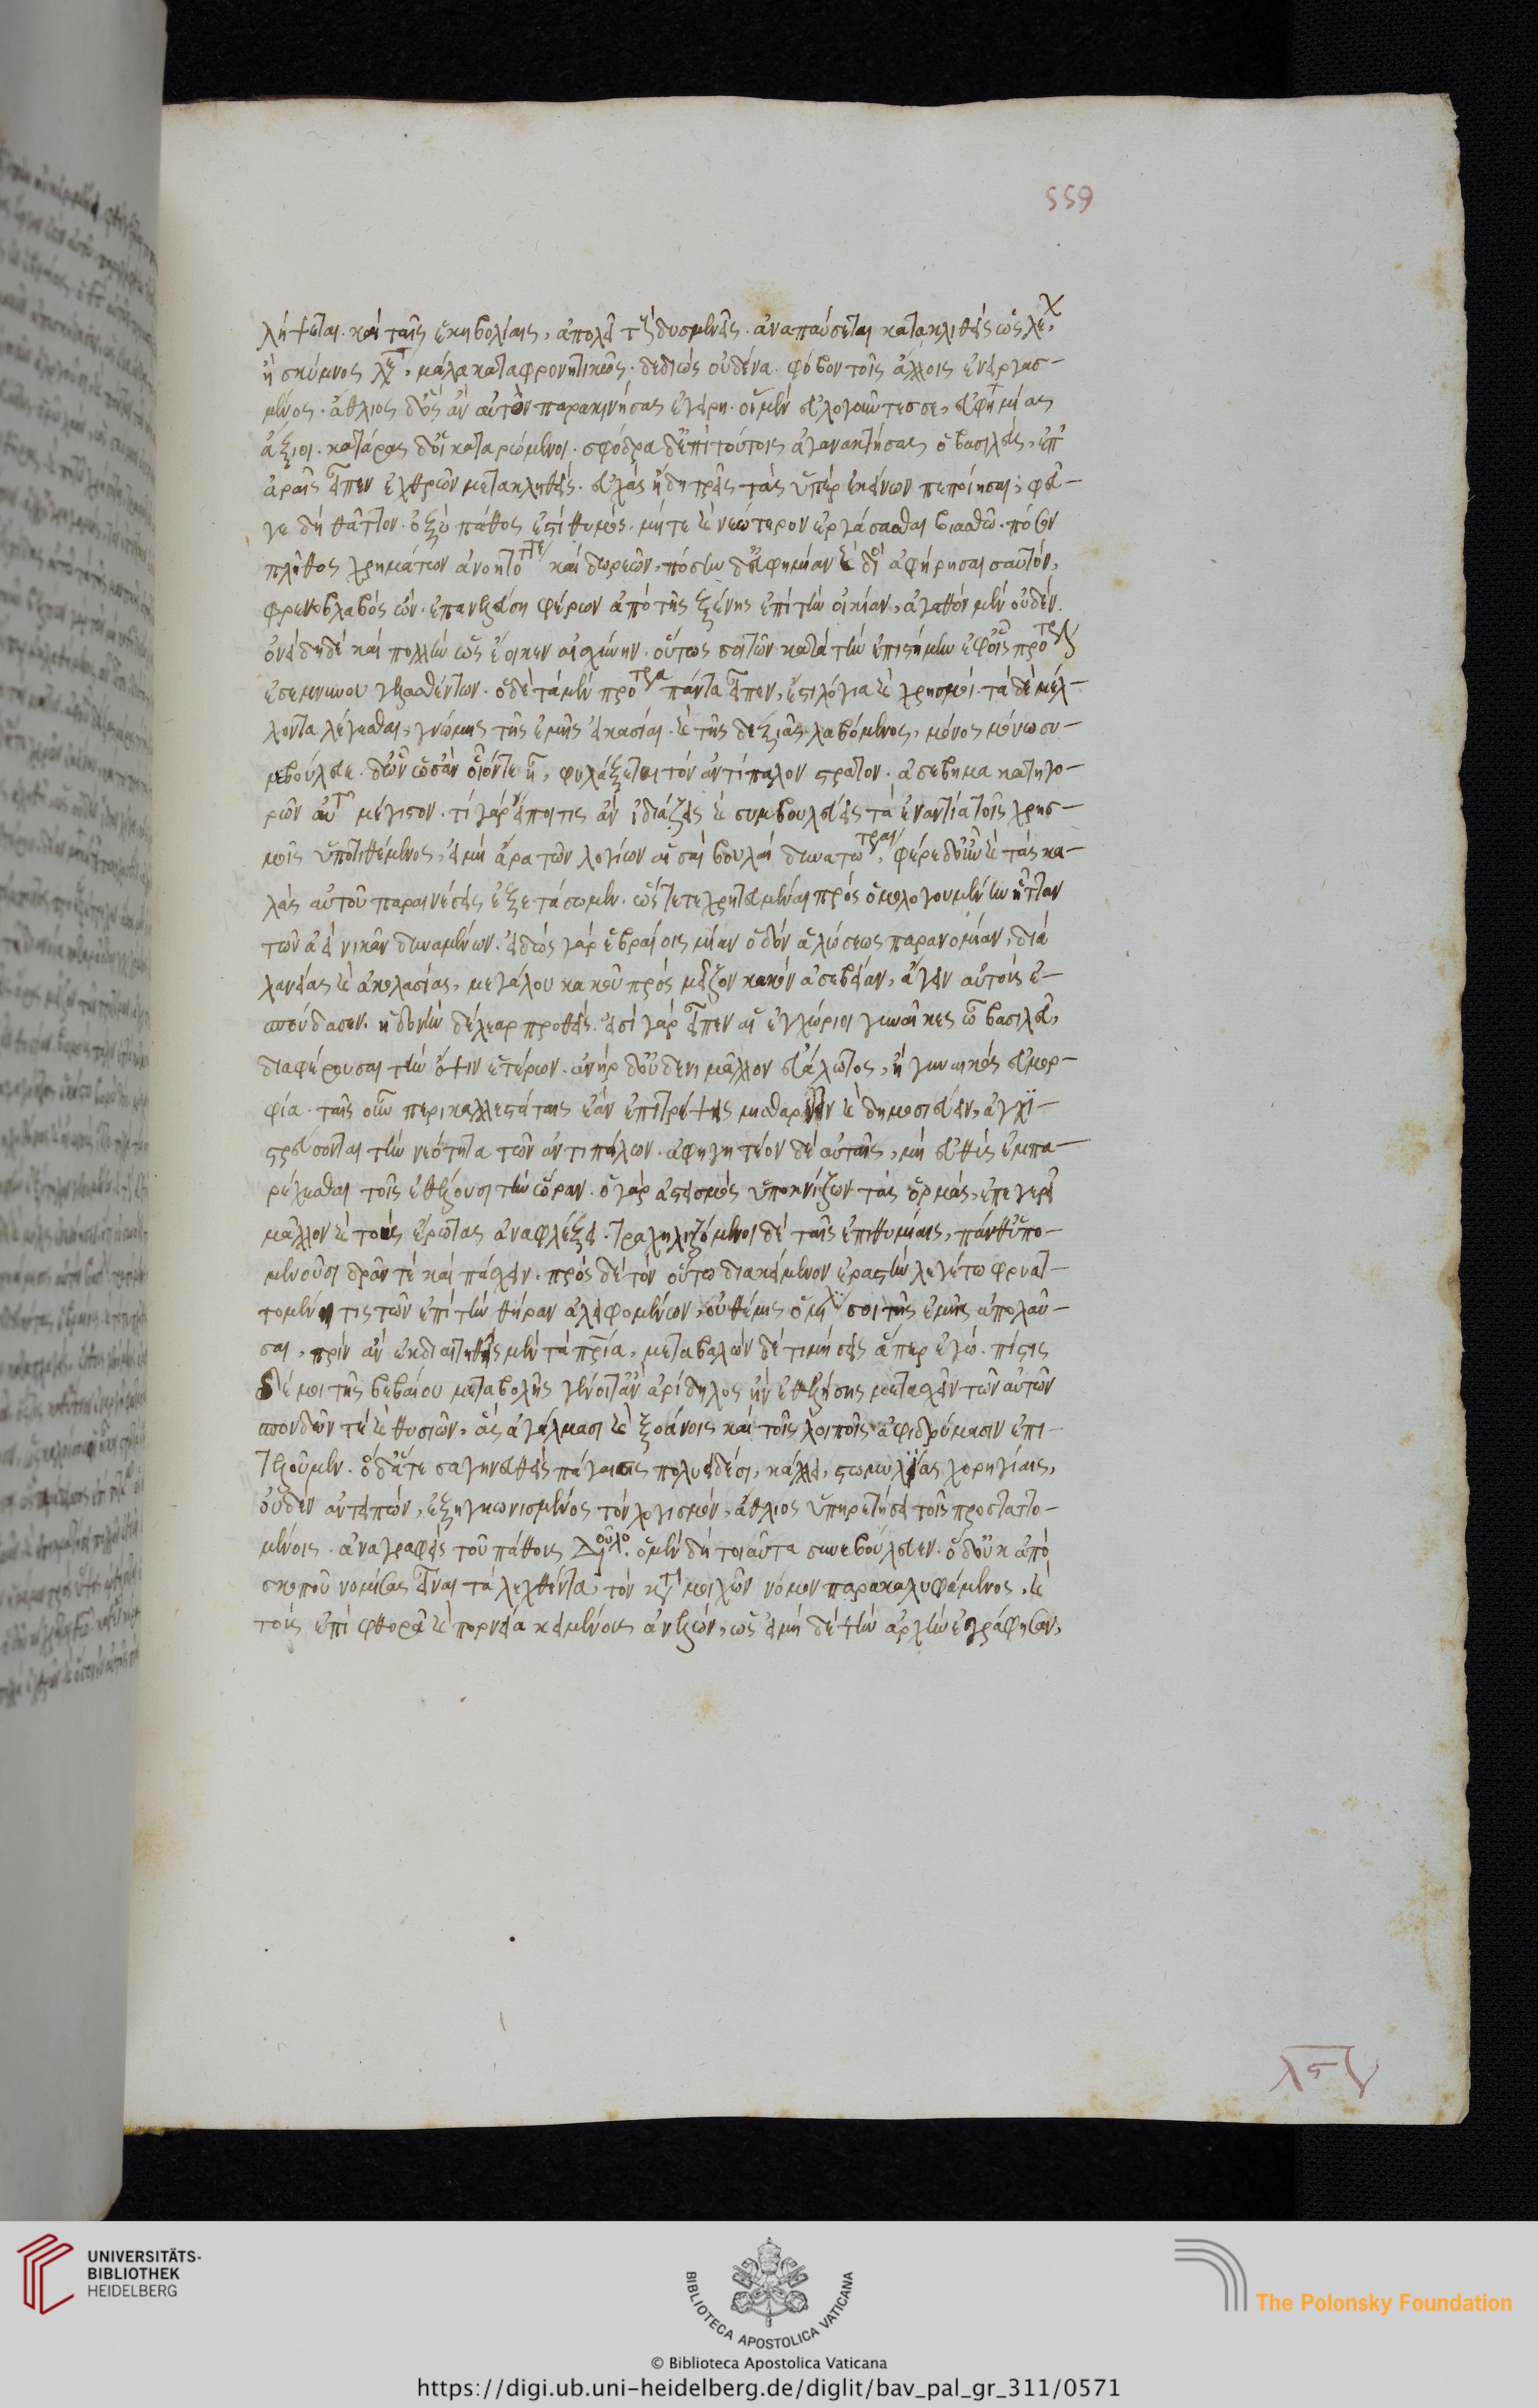 559
λήψεται. καὶ ταῖς ἑκηβολίαις, ἀπολεῖ τοὺς δυσμενεῖς. ἀναπαύσεται κατακλιθεὶς ὡς λέων,
ἢ σκύμνος λέοντος, μάλα καταφρονητικῶς. δεδιὼς οὐδένα. φόβον τοῖς ἄλλοις ἐνειργασ-
μένος. ἄθλιος δ' ὃς ἂν αὐτὸν παρακινήσας ἐγείρῃ. οἱ μὲν εὐλογοῦντες σε, εὐφημίας
ἄξιοι. κατάρας δ' οἱ καταρώμενοι. σφόδρα δ' ἐπὶ τούτοις ἀγανακτήσας ὁ βασιλεὺς, ἐπ'
ἀραῖς εἶπεν ἐχθρῶν μετακληθεὶς. εὐχὰς ἤδη τρεῖς τὰς ὑπὲρ ἐκείνων πεποίησαι; φεῦ-
γε δὴ θᾶττον. ὀξὺ πάθος ἐστὶ θυμὸς. μή τι καὶ νεώτερον ἐργάσασθαι βιασθῶ. πόσον
πλῆθος χρημάτων ἀνοητότατε καὶ δωρεῶν, πόσην δ' εὐφημίαν καὶ δό ἀφῄρησαι σαυτόν,
φρενοβλαβὸς ὤν. ἐπανελεύσῃ φέρων ἀπὸ τῆς ξένης ἐπὶ τὴν οἰκίαν, ἀγαθὸν μὲν οὐδέν.
ὀνείδη δὲ καὶ πολλὴν ὡς ἔοικεν αἰσχύνην. οὕτως σοι τῶν κατὰ τὴν ἐπιστήμην ἐφ' οἷς πρότερον
ἐσεμνύνου γελασθέντων. ὁ δὲ τὰ μὲν πρότερα πάντα εἶπεν, ἐστι λόγια καὶ χρησμοί. τὰ δὲ μέλ-
λοντα λέγεσθαι, γνώμης τῆς ἐμῆς εἰκασίαι. καὶ τῆς δεξιᾶς λαβόμενος, μόνος μόνῳ συ-
νεβούλευε. δι' ὧν ὡς ἂν οἷόν τε ᾖ, φυλάξεται τὸν ἀντίπαλον στρατόν. ἀσέβημα κατηγο-
ρῶν αὑτοῦ μέγιστον. τί γὰρ εἴποι τις ἂν ἰδιάζεις καὶ συμβουλεύεις τὰ ἐναντία τοῖς χρησ-
μοῖς ὑποτιθέμενος, εἰ μὴ ἄρα τῶν λογίων αἱ σαὶ βουλαὶ δυνατώτεραι; φέρε δ' οὖν καὶ τὰς κα-
λὰς αὐτοῦ παραινέσεις ἐξετάσωμεν. ὡς τετεχνιτευμέναι πρὸς ὁμολογουμένην ἧτταν
τῶν ἀεὶ νικᾶν δυναμένων. εἰδὼς γὰρ ἑβραίοις μίαν ὁδὸν ἁλώσεως παρανομίαν, διὰ
λαγνείας καὶ ἀκολασίας, μεγάλου κακοῦ πρὸς μεῖζον κακὸν ἀσέβειαν, ἄγειν αὐτοὺς ἐ-
σπούδασεν. ἡδονὴν δέλεαρ προθεὶς. εἰσὶ γὰρ εἶπεν αἱ ἐγχώριοι γυναῖκες ὦ βασιλεῦ,
διαφέρουσαι τὴν ὄψιν ἑτέρων. ἀνὴρ δ' οὐδενὶ μᾶλλον εὐάλωτος, ἢ γυναικὸς εὐμορ-
φία. ταῖς οὖν περικαλλεστάταις ἐὰν ἐπιτρέψῃς μισθαρνεῖν καὶ δημοσιεύειν, ἀγκι-
στρεύσονται τὴν νεότητα τῶν ἀντιπάλων. ἀφηγητέον δὲ αὐταῖς, μὴ εὐθὺς ἐμπα-
ρέχεσθαι τοῖς ἐθέλουσι τὴν ὥραν. ὁ γὰρ ἀκκισμὸς ὑποκνίζων τὰς ὁρμὰς, ἐπεγερεῖ
μᾶλλον καὶ τοὺς ἔρωτας ἀναφλέξει. τραχηλιζόμενοι δὲ ταῖς ἐπιθυμίαις, πάνθ' ὑπο-
μενοῦσι δρᾶν τὲ καὶ πάσχειν. πρὸς δὲ τὸν οὕτω διακείμενον ἐραστὴν λεγέτω φρυατ-
τομένη τις τῶν ἐπὶ τὴν θήραν ἀλειφομένων, οὐ θέμις ὁμιλίας σοι τῆς ἐμῆς ἀπολαῦ-
σαι, πρὶν ἂν ἐκδιαιτηθῇς μὲν τὰ πρια, μεταβαλὼν δὲ τιμήσεις ἅπερ ἐγώ. πίστις
δέ μοι τῆς βεβαίου μεταβολῆς γένοιτ' ἂν ἀρίδηλος ἢν ἐθελήσῃς μετασχεῖν τῶν αὐτῶν
σπονδῶν τὲ καὶ θυσιῶν, ἃς ἀγάλμασι καὶ ξοάνοις καὶ τοῖς λοιποῖς ἀφιδρύμασιν ἐπι-
τελοῦμεν. ὁ δ' ἅτε σαγηνευθεὶς πάγαις πολυειδέσι, κάλλει, στωμυλίας χορηγίαις,
οὐδὲν ἀντειπών, ἐξηγκωνισμένος τὸν λογισμόν, ἄθλιος ὑπηρετήσει τοῖς προσταττο-
μένοις. ἀναγραφεὶς τοῦ πάθους δοῦλος. ὁ μὲν δὴ τοιαῦτα συνεβούλευεν. ὁ δ' οὐκ ἀπὸ
σκοποῦ νομίσας εἶναι τὰ λεχθέντα, τὸν κατὰ μοιχῶν νόμον παρακαλυψάμενος, καὶ
τοὺς ἐπὶ φθορᾷ καὶ πορνείᾳ κειμένους ἀνελών, ὡς εἰ μὴ δὲ τὴν ἀρχὴν ἐγράφησαν,
UNIVERSITÄTS-
BIBLIOTHEK
HEIDELBERG
BIBLIOTECA APOSTOLICA VATICANA
The Polonsky Foundation
© Biblioteca Apostolica Vaticana
https://digi.ub.uni-heidelberg.de/diglit/bav_pal_gr_311/0571